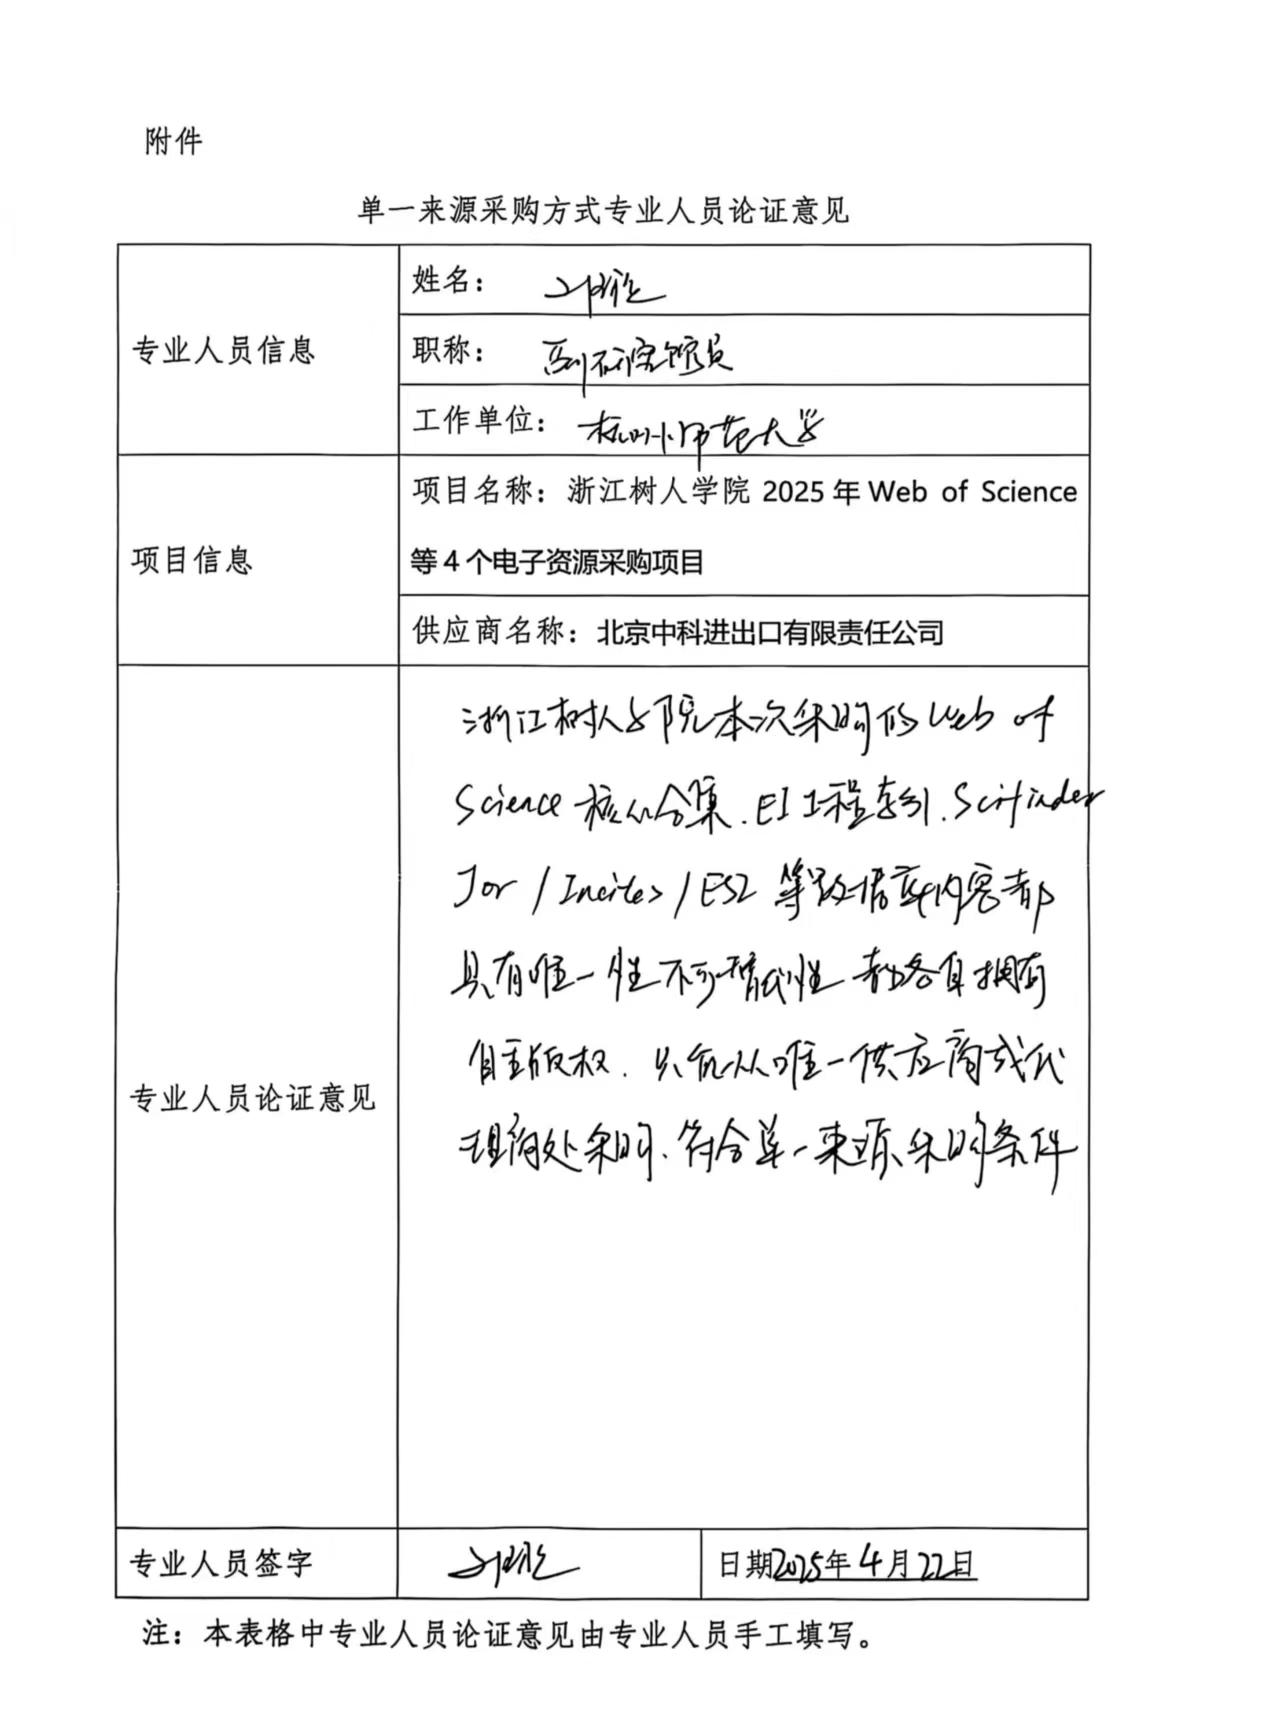 附件
单一来源采购方式专业人员论证意见
专业人员信息
姓名：
职称： 副研究馆员
工作单位： 杭州师范大学
项目信息
项目名称：浙江树人学院 2025 年 Web of Science
等 4 个电子资源采购项目
供应商名称：北京中科进出口有限责任公司
专业人员论证意见
浙江树人学院本次采购的 Web of
Science 核心合集、EI工程索引、Scifinder
Jcr / Incites / ESI 等数据库内容都
具有唯一性不可替代性 都各自拥有
自主版权．只能从唯一供应商或代
理商处采购、符合单一来源采购条件
专业人员签字
日期 2025年 4 月 22日
注：本表格中专业人员论证意见由专业人员手工填写。